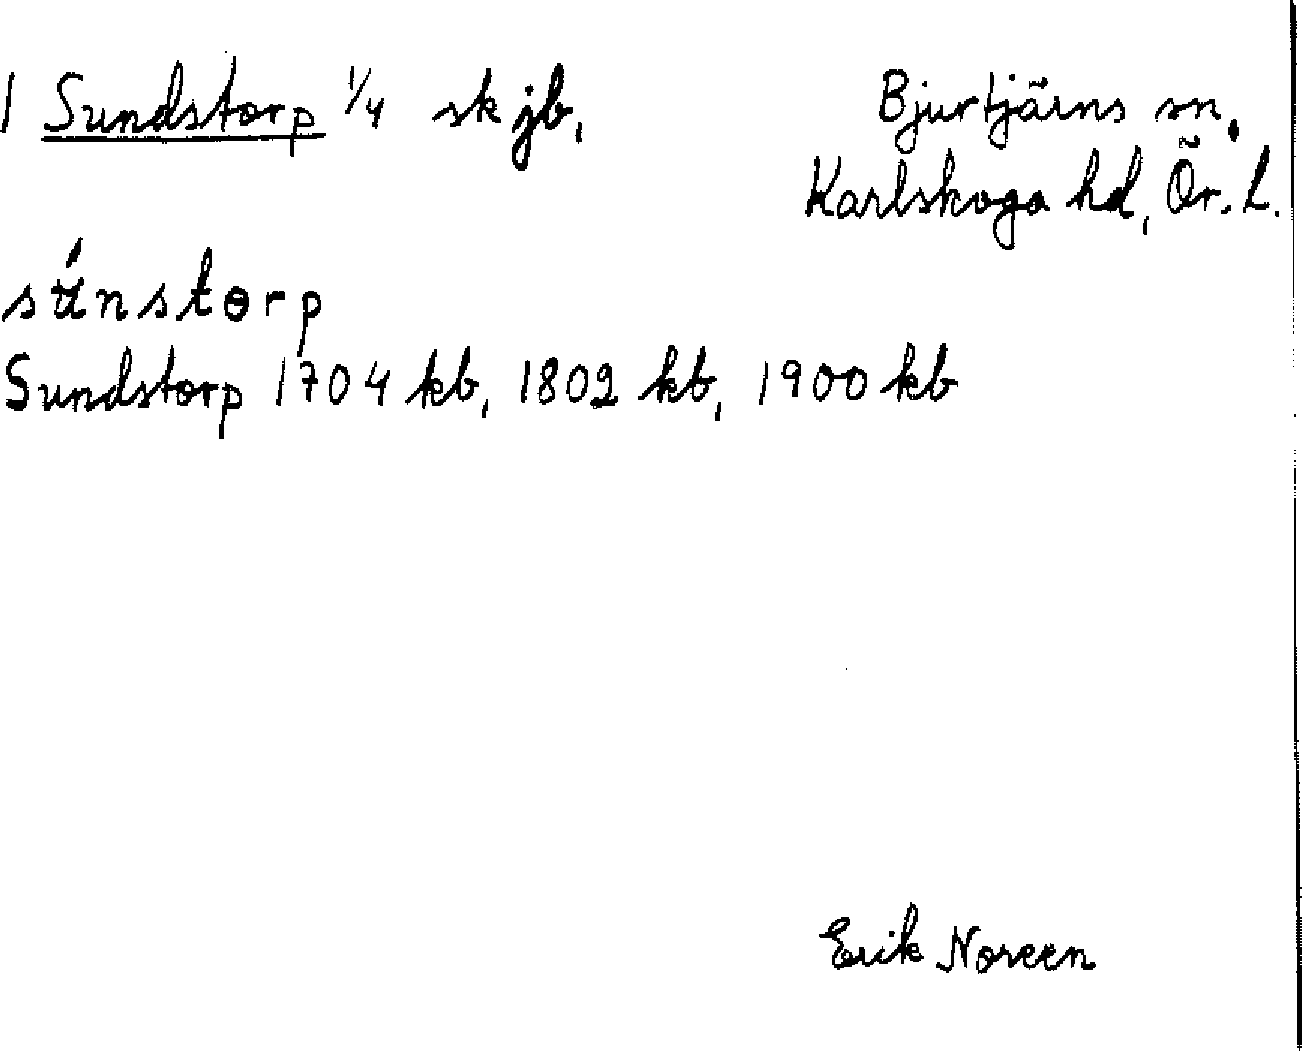 1 Sundstorp 1/4 sk jb,
Bjurtjärns sn,
Karlskoga hd, Ör. L.
súnstɵrp
Sundstorp 1704 kb, 1802 kb, 1900 kb
Erik Noreen